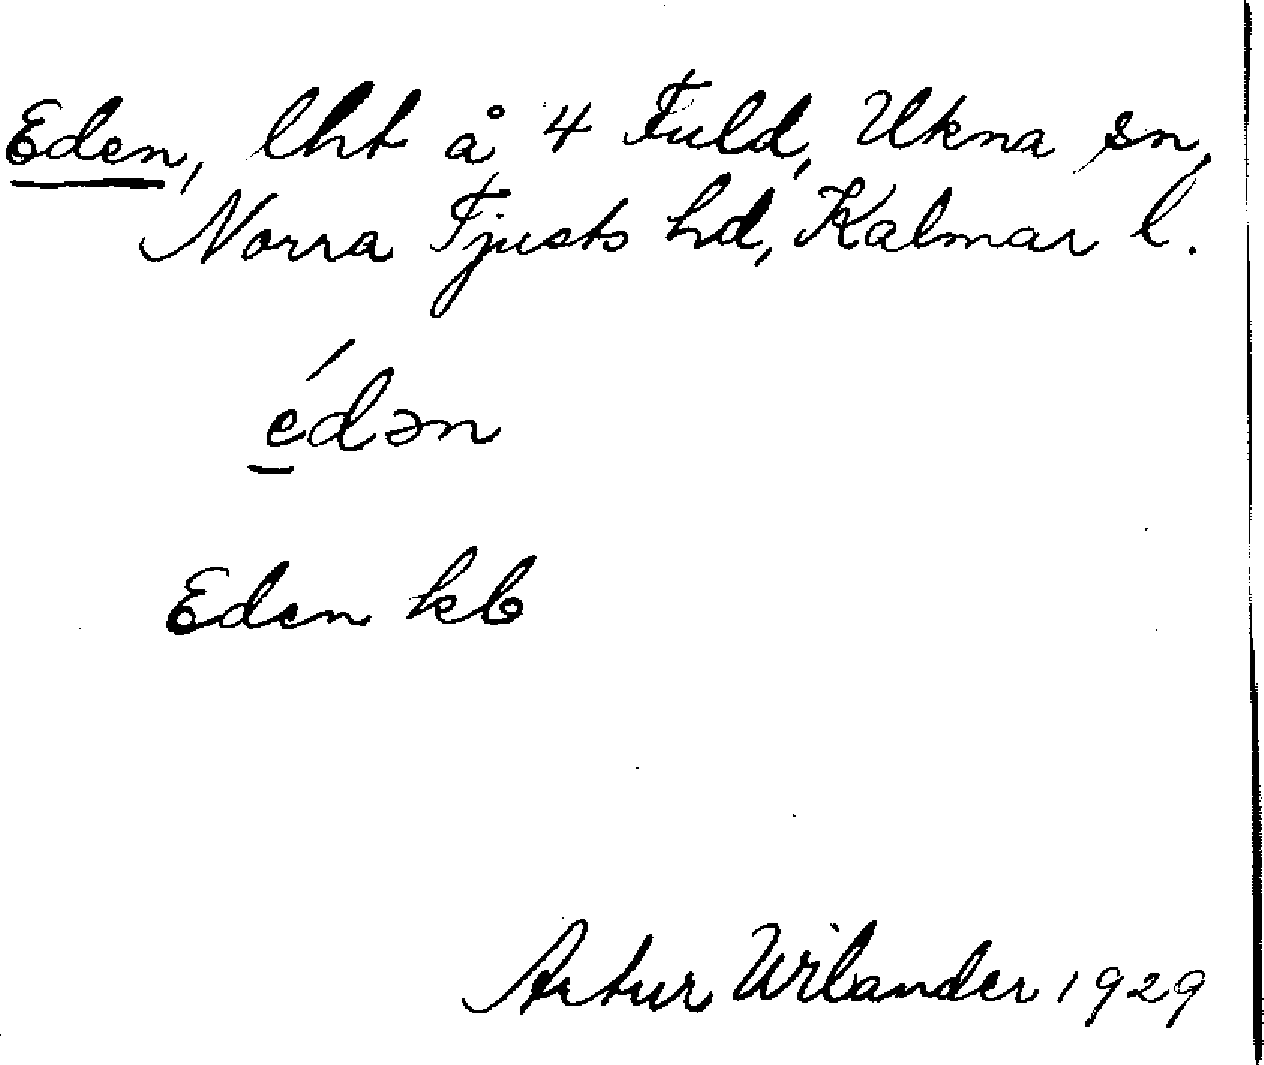 Eden, lht å 4 Fuld, Ukna sn,
Norra Tjusts hd, Kalmar l.
é̲dən
Eden kb
Artur Wilander 1929